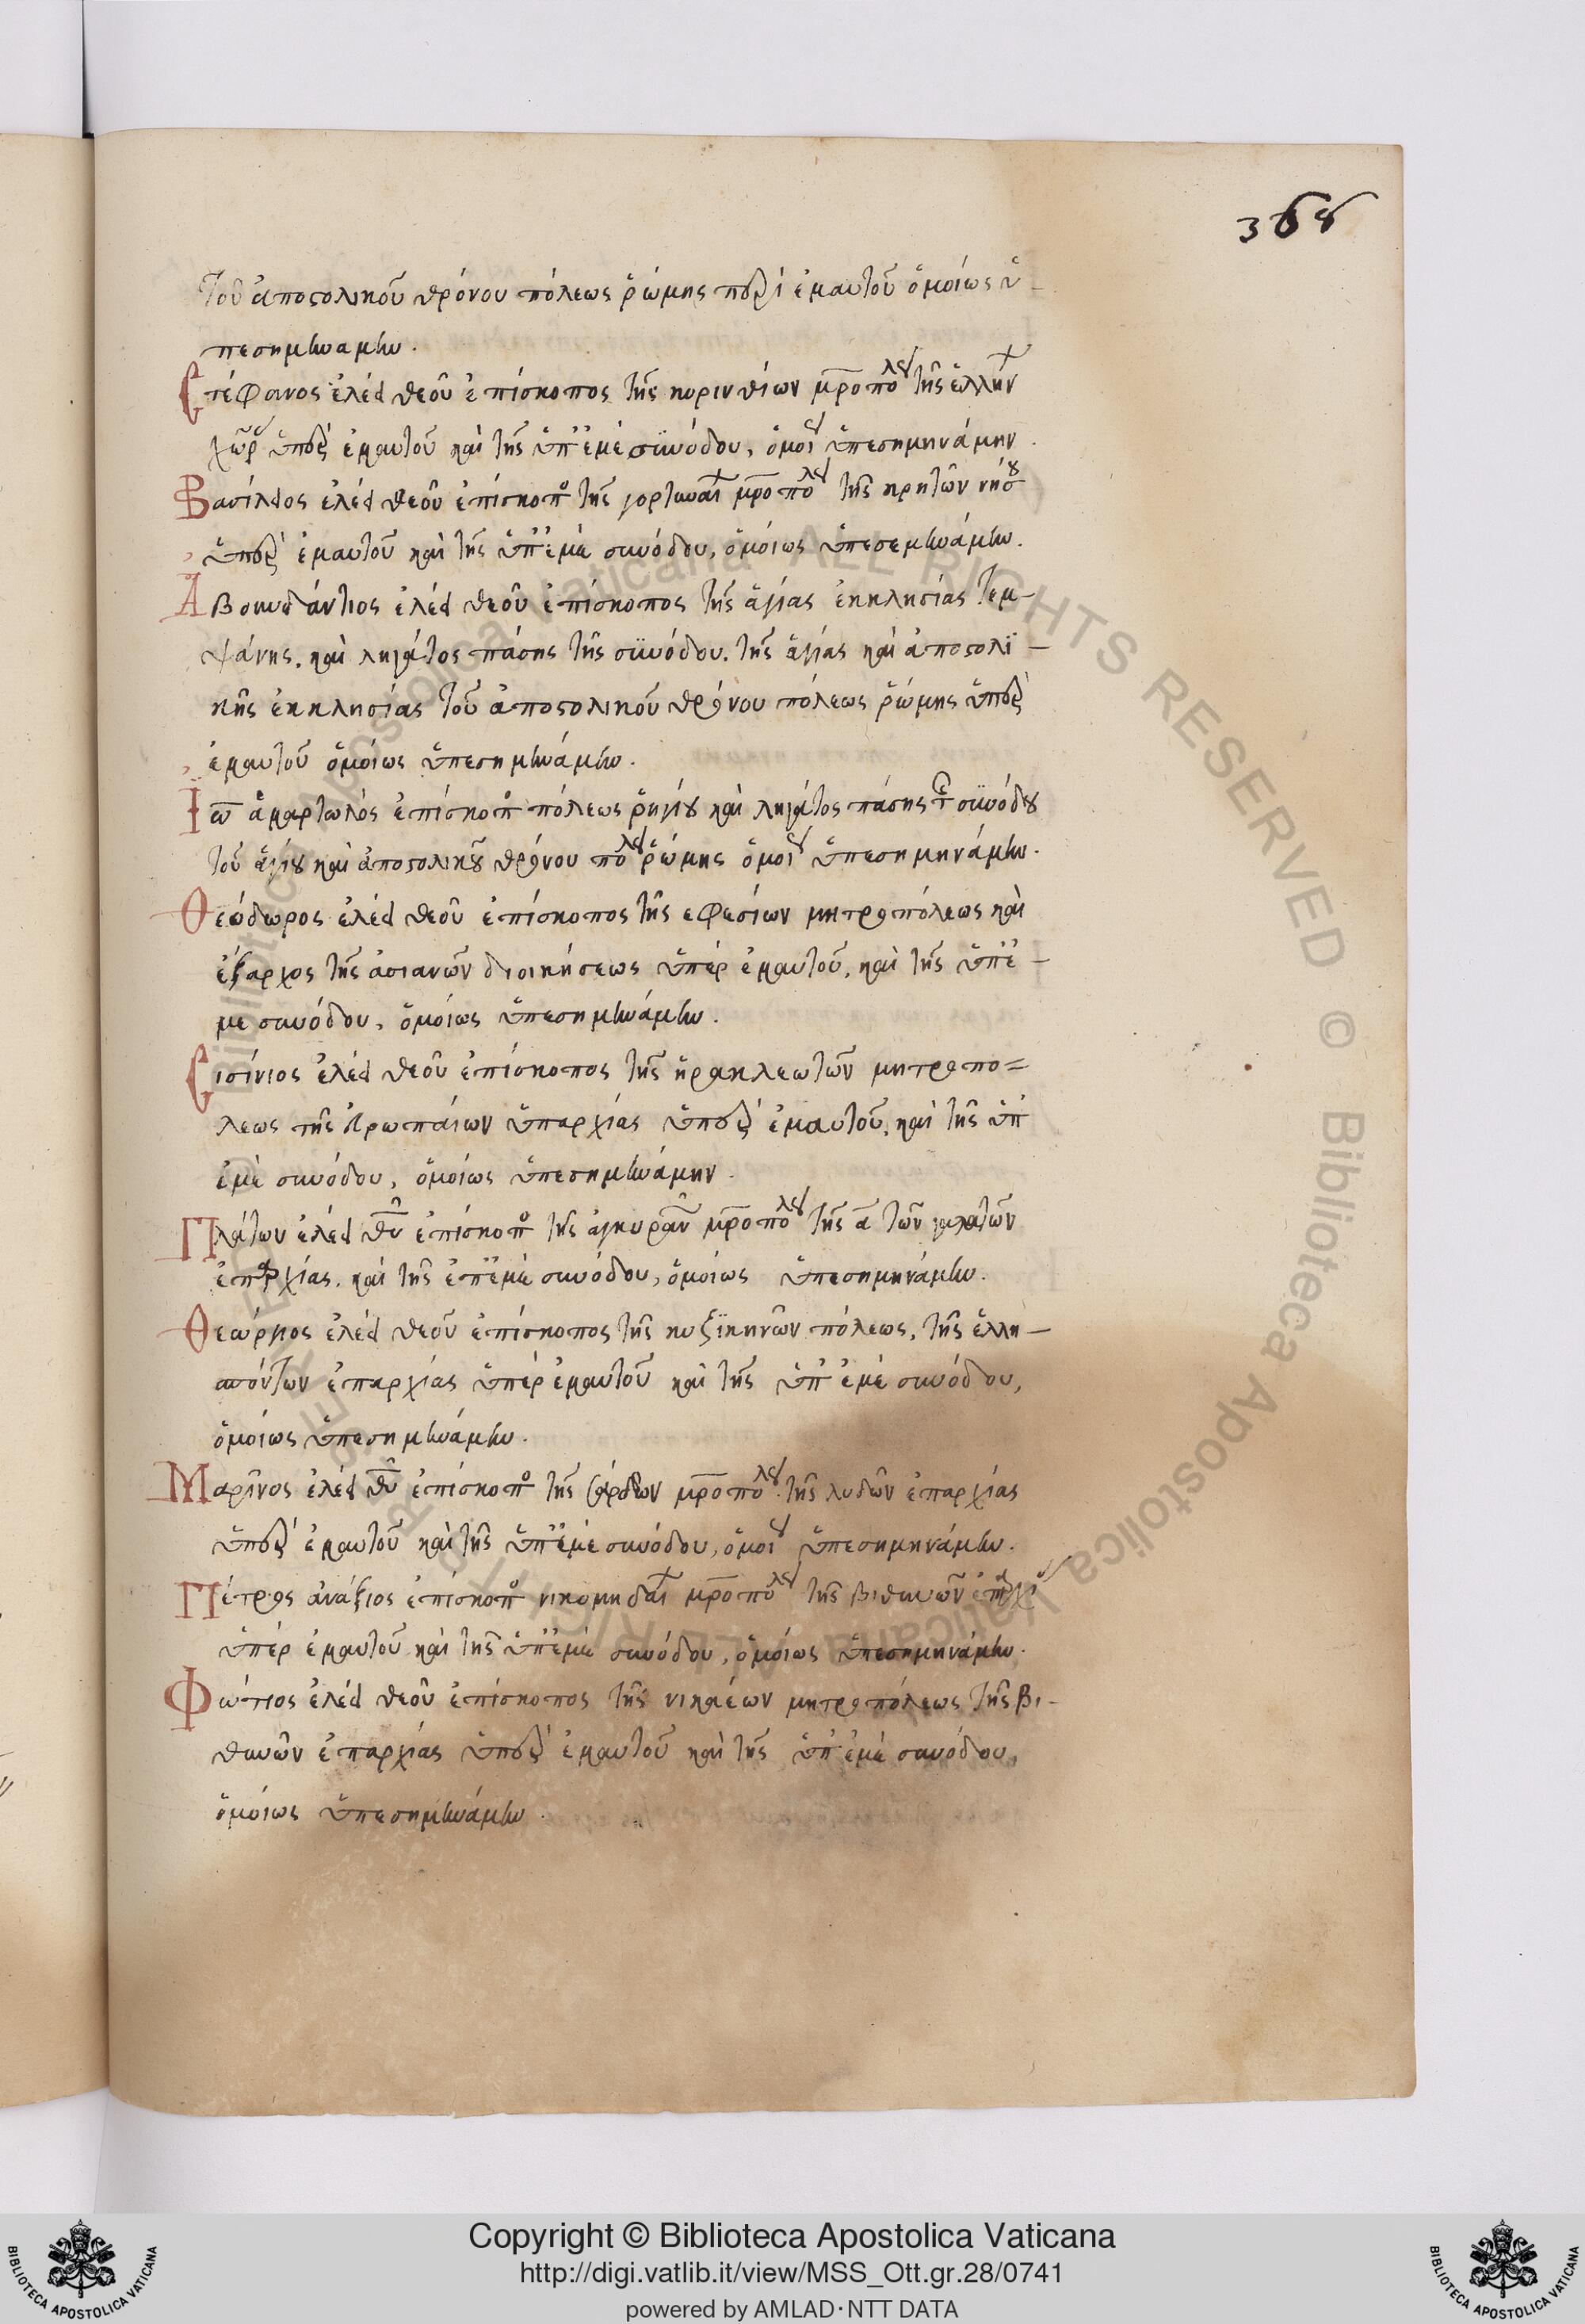 368
τοῦ ἀποστολικοῦ θρόνου πόλεως ῥώμης περὶ ἐμαυτοῦ ὁμοίως ὑ-
πεσημηναμην.
Στέφανος ἐλέει θεοῦ ἐπίσκοπος τῆς κορινθίων μροπολ τῆς ἑλλην
χώρ ὑπὲρ ἐμαυτοῦ καὶ τῆς ὑπ' ἐμὲ συνόδου, ὁμοί ὑπεσημηνάμην.
Βασίλειος ἐλέει θεοῦ ἐπίσκοπ τῆς γορτυναί μροπολ τῆς κρητῶν νήσου
ὑπὲρ ἐμαυτοῦ καὶ τῆς ὑπ' ἐμὲ συνόδου, ὁμοίως ὑπεσεμηνάμην.
Ἀβουνδάντιος ἐλέει θεοῦ ἐπίσκοπος τῆς ἁγίας ἐκκλησίας τεμ-
ψάνης. καὶ ληγάτος πάσης τῆς συνόδου. τῆς ἁγίας καὶ ἀποστολι-
κῆς ἐκκλησίας τοῦ ἀποστολικοῦ θρόνου πόλεως ῥώμης ὑπὲρ
ἐμαυτοῦ ὁμοίως ὑπεσημηνάμην.
Ἰω ἁμαρτωλὸς ἐπίσκοπ πόλεως ῥηγίου καὶ ληγάτος πάσης τ συνόδου
τοῦ ἁγίου καὶ ἀποστολικοῦ θρόνου πολ ῥώμης ὁμοί ὑπεσημηνάμην.
Θεόδωρος ἐλέει θεοῦ ἐπίσκοπος τῆς εφεσίων μητροπόλεως καὶ
ἔξαρχος τῆς ἀσιανῶν διοικήσεως ὑπὲρ ἐμαυτοῦ, καὶ τῆς ὑπ' ἐ-
με συνόδου, ὁμοίως ὑπεσημηνάμην.
Σισίνιος ἐλέει θεοῦ ἐπίσκοπος τῆς ἡρακλεωτῶν μητροπο=
λεως τῆς εὐρωπαίων ὑπαρχίας ὑπὲρ ἐμαυτοῦ, καὶ τῆς ὑπ'
ἐμὲ συνόδου, ὁμοίως ὑπεσημηνάμην.
Πλάτων ἐλέει θυ ἐπίσκοπ τῆς ἀγκυραν μροπολ τῆς α τῶν γαλατῶν
ἐπαρχίας. καὶ τῆς ἐπ' ἐμὲ συνόδου, ὁμοίως ὑπεσημηνάμην.
Θεώργιος ἐλέει θεοῦ ἐπίσκοπος τῆς κυζικηνῶν πόλεως, τῆς ἑλλη-
σπόντων ἐπαρχίας ὑπὲρ ἐμαυτοῦ καὶ τῆς ὑπ' ἐμὲ συνόδου,
ὁμοίως ὑπεσημηνάμην.
Μαρῖνος ἐλέει θυ ἐπίσκοπ τῆς σάρδεων μροπολ. τῆς λυδῶν ἐπαρχίας
ὑπὲρ ἐμαυτοῦ καὶ τῆς ὑπ' ἐμὲ συνόδου, ὁμοί ὑπεσημηνάμην.
Πέτρος ἀνάξιος ἐπίσκοπ νικομηδαί μροπολ τῆς βιθυνῶν ἐπαρχί
ὑπὲρ ἐμαυτοῦ καὶ τῆς ὑπ' ἐμὲ συνόδου, ὁμοίως ὑπεσημηνάμην.
Φώτιος ἐλέει θεοῦ ἐπίσκοπος τῆς νικαέων μητροπόλεως τῆς βι-
θυνῶν ἐπαρχίας ὑπὲρ ἐμαυτοῦ καὶ τῆς ὑπ' ἐμὲ συνόδου,
ὁμοίως ὑπεσημηνάμην.
Copyright © Biblioteca Apostolica Vaticana
http://digi.vatlib.it/view/MSS_Ott.gr.28/0741
powered by AMLAD·NTT DATA